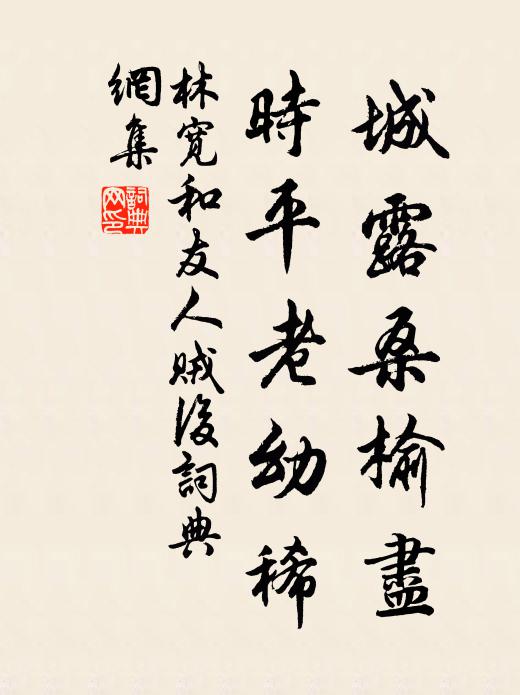 城露桑榆盡
時平老幼稀
林寬和友人賊後詞典
網集
詞典網印